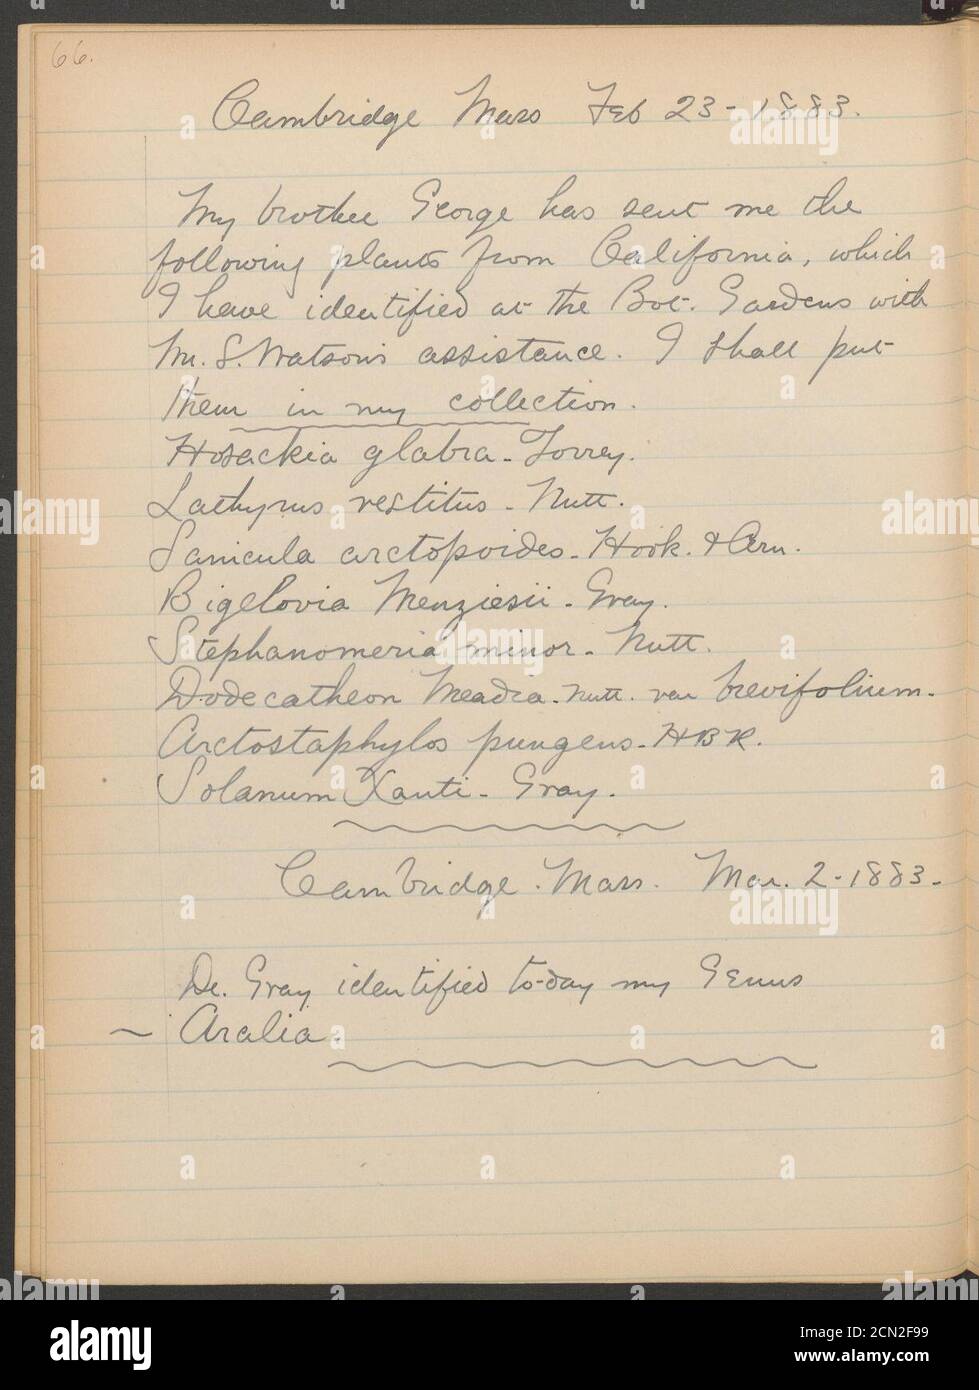 66.
Cambridge Mass Feb 23-1883.
My brother George has sent me the
following plants from California, which
I have identified at the Bot. Gardens with
Mr. S. Watson's assistance. I shall put
them in my collection.
Hosackia glabra - Torrey.
Lathyrus vestitus - Nutt.
Sanicula arctopoides - Hook. & Arn.
Bigelovia Menziesii - Gray.
Stephanomeria minor - Nutt.
Dodecatheon Meadia - Nutt. var brevifolium.
Arctostaphylos pungens - HBK.
Solanum Xanti - Gray.
Cambridge. Mass. Mar. 2-1883-
Dr. Gray identified to-day my Genus
~ Aralia.
alamy
Image ID: 2CN2F99
www.alamy.com